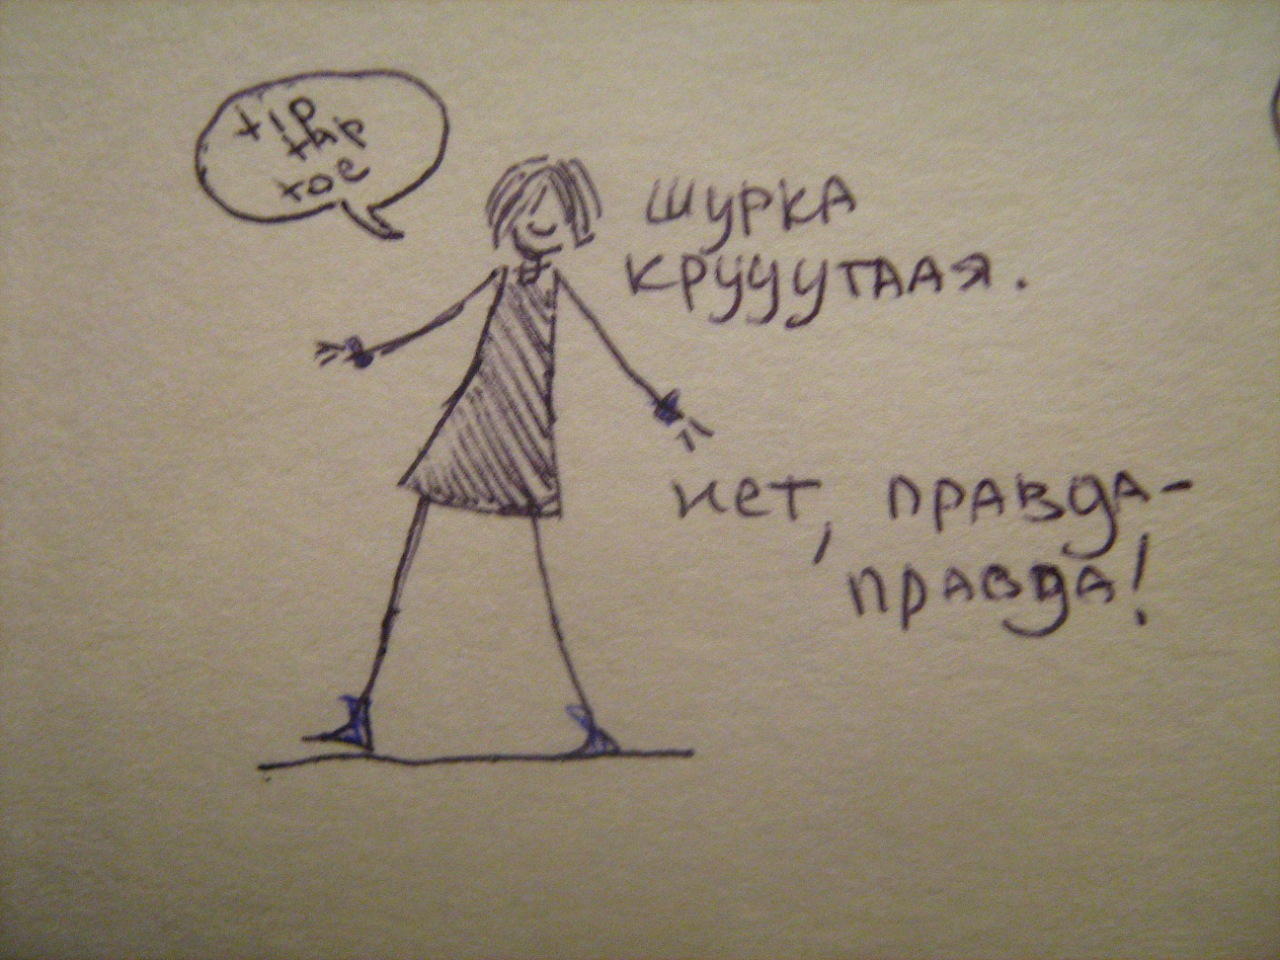 tip
tap
toe
ШУРКА
КРУУУТААЯ.
нет, ПРАВДА-
ПРАВДА!